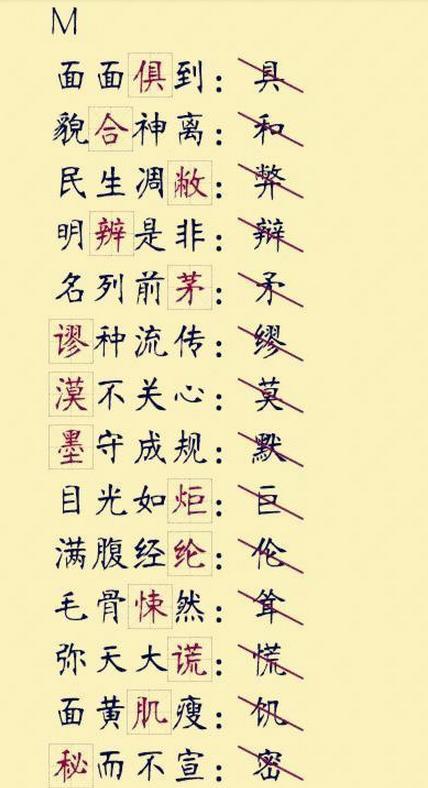 M
面面俱到：具
貌合神离：和
民生凋敝：弊
明辨是非：辩
名列前茅：矛
谬种流传：缪
漠不关心：莫
墨守成规：默
目光如炬：巨
满腹经纶：伦
毛骨悚然：耸
弥天大谎：慌
面黄肌瘦：饥
秘而不宣：密